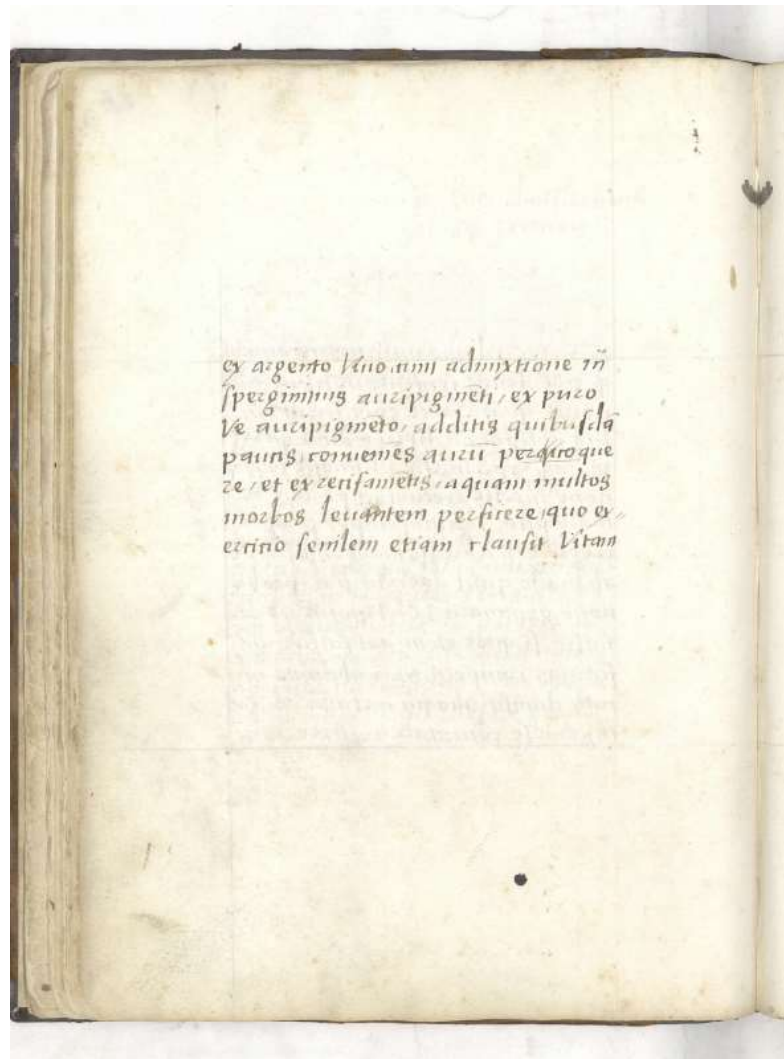 ex argento vivo cum admixtione in
spergininus auripigmẽti, ex puro
ve auripigmẽto, additis quibusdã
paucis, comiemẽs aurũ perdito que
re, et ex recisamẽtis, aquam multos
morbos levantem perficere, quo ex
ercitio senilem etiam clausit vitam